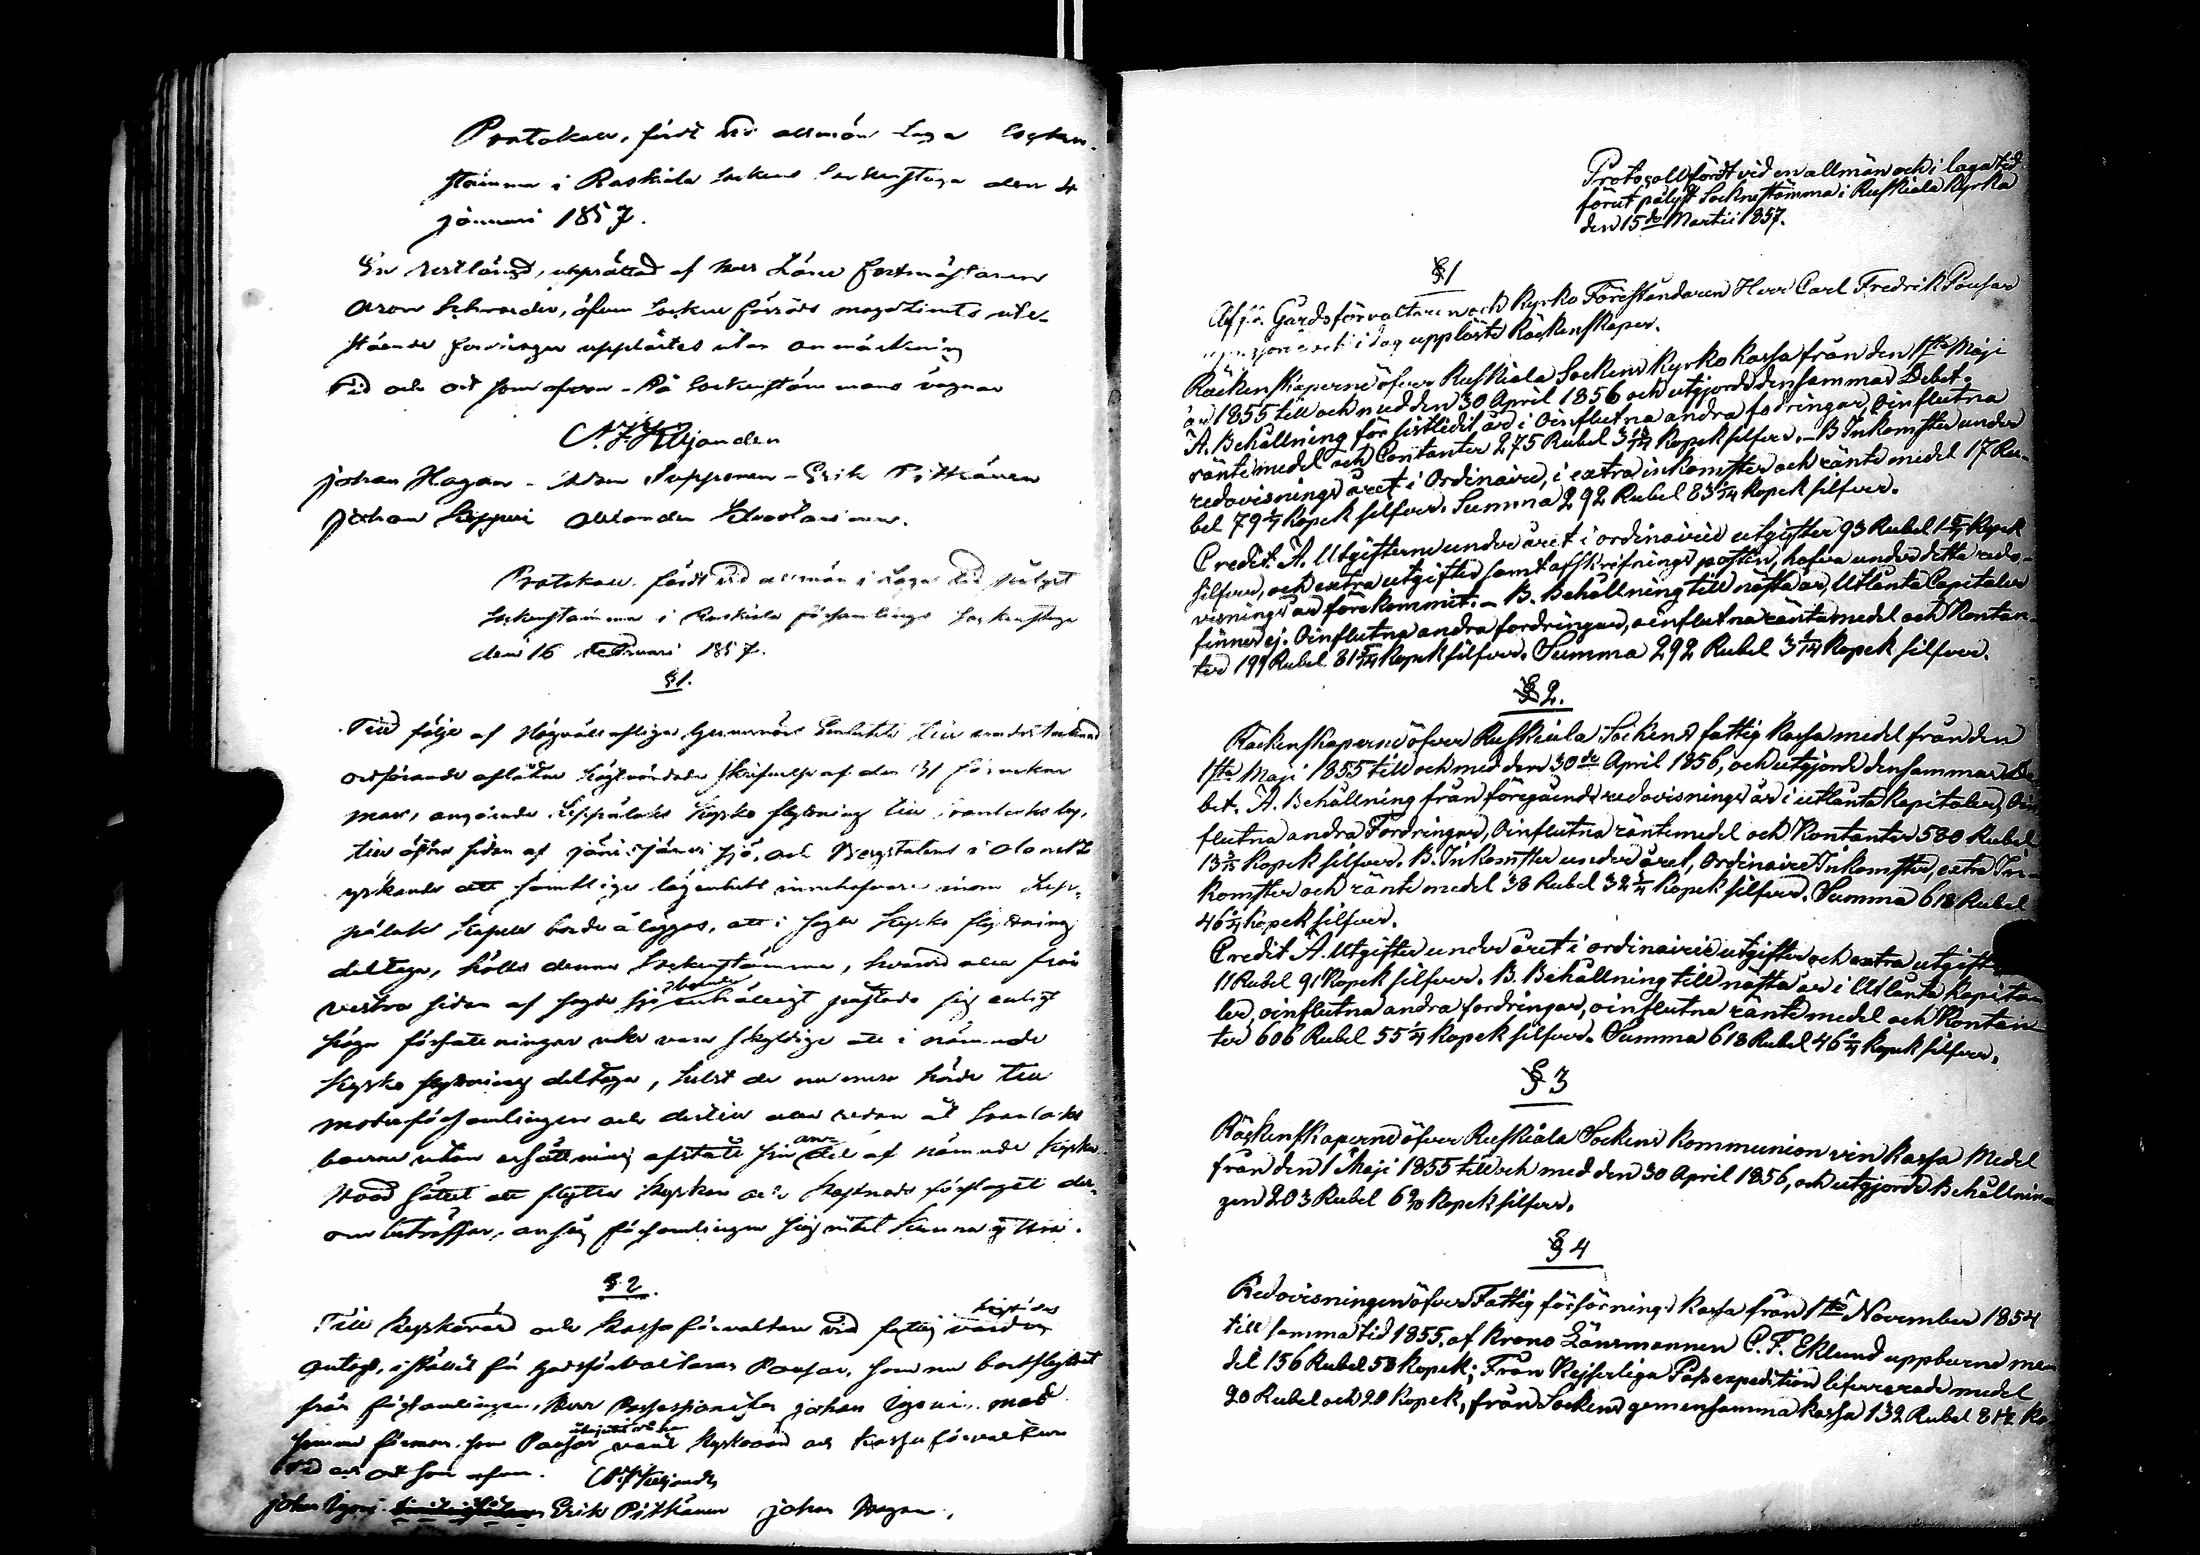 Protokoll, fördt vid allmän Laga Socken-
stämma i Ruskiala Sockens Sockenstuga den 4
januari 1857.
En restlängd, upprättad af Herr Läne Fortmästaren
Aron Schroeder, öfver Socken förråds magazinets ute-
stående fordringar upplästes utan anmärkning
Tid och ort som ofvan - På Sockenstämmans vägnar
Johan Hagan - Adam Supponen - Erik Pitkänen
Johan
Protokoll fördt vid allmän i Laga tid pålyst
Sockenstämma i Ruskiala församlings Sockenstuga
den 16 Februari 1857.
§ 1.
Till följe af Högvällofliga Guvernörs Embetets till undertecknad
ordförande aflåtna skrifvelse af den 31
mars, angående Kyrko flyttning till
till östra sidan af Jänisjärvi sjö, och
yrkande att samtlige lägenhets innehafvare inom Lep-
pälaks Kapell borde åläggas, att i sagde Kyrko flyttning
deltaga, hölls denna Sockenstämma, hvarvid alla från
vestra sidan af sagde sjö enhälligt påstodo sig enligt
höga författningar icke vara skyldige att i nämnde
Kyrko flyttning deltaga, helst de nu mera höra till
moderförsamlingen och dertill alla redan åt
boerne utan ersättning afstått sin del af nämnde Kyrka.
Hvad sättet att flytta Kyrkan och kostnads förslaget der-
om beträffar, ansåg församlingen sig intet kunna yttra.
§ 2.
Till Kyrkovärd och Kassaförvaltare vid fattig vården
antogs, i stället för gårdsförvaltaren Pousar, som nu bortflyttat
från församlingen, Herr Possessionaten Johan med
samma förmon som Pousar Kyrkovärd och Kassaförvaltare
Tid och ort som ofvan.
Johan Erik Pitkänen Johan Hagan.
Protocoll fördt vid en allmän och i laga tid
förut pålyst Sockenstämma i Ruskiala Kyrka
den 15de Martii 1857.
§ 1
Af f.d. Gårdsförvaltaren och Kyrko Föreståndaren Herr Carl Fredrik Pousar
och i dag upplästa Räkenskaper.
Räkenskaperne öfver Ruskiala Sockens Kyrko Kassa från den 1sta Maji
år 1855 till och med den 30 April 1856 och utgjorde densammas Debet.
A. Behållning för sistlidit år i Oinflutna andra fodringar, Oinflutna
räntemedel och Contanter 275 Rubel 3 Kopek silfver. - B Inkomster under
redovisnings året i Ordinaire, i extra inkomster och räntemedel 17 Ru-
bel 79 Kopek silfver. Summa 292 Rubel 83 Kopek silfver.
Credit. A. Utgifterne under året i ordinairie utgifter 93 Rubel 1 Kopek
silfver, och extra utgifter samt afskrifnings poster, hafva under detta redo-
visnings år förekommit. - B. Behållning till nästa år, Utlånta Capitaler
finnes ej. Oinflutna andra fordringar, oinflutna räntemedel och Kontan-
ter 199 Rubel 81 Kopek silfver. Summa 292 Rubel 3 Kopek silfver.
§ 2.
Räkenskaperne öfver Ruskiala Sockens fattig Kassa medel från den
1sta Maji 1855 till och med den 30de April 1856, och utgjorde densammas De-
bet. A. Behållning från föregående redovisnings år i utlånta Kapitaler, Oin-
flutna andra Fordringar, Oinflutna räntemedel och Kontanter 580 Rubel
13 Kopek silfver. B. Inkomster under året, Ordinaire Inkomster, extra In-
komster och räntemedel 38 Rubel 32 Kopek silfver. Summa 618 Rubel
46 Kopek silfver.
Credit A. Utgifter under året i ordinairie utgifter och extra utgift
11 Rubel 91 Kopek silfver. B. Behållning till nästa år i Utlånta Kapita-
ler, oinflutna andra fordringar, oinflutna räntemedel och Kontan-
ter 606 Rubel 55 Kopek silfver. Summa 618 Rubel 46 Kopek silfver.
§ 3
Räkenskaperne öfver Ruskiala Sockens Kommunion vin Kassa Medel
från den 1 Maji 1855 till och med den 30 April 1856, och utgjorde Behållnin-
gen 203 Rubel Kopek silfver.
§ 4
Redovisningen öfver Fattig försörnings Kassa från 1sta November 1854
till samma tid 1855, af Krono Länsmannen C. F. Eklund uppburne me-
del 156 Rubel 58 Kopek; Från Kejserliga Passexpedition lefvererade medel
20 Rubel och 20 Kopek, från Sockens gemensamma Kassa 132 Rubel 81½ Ko